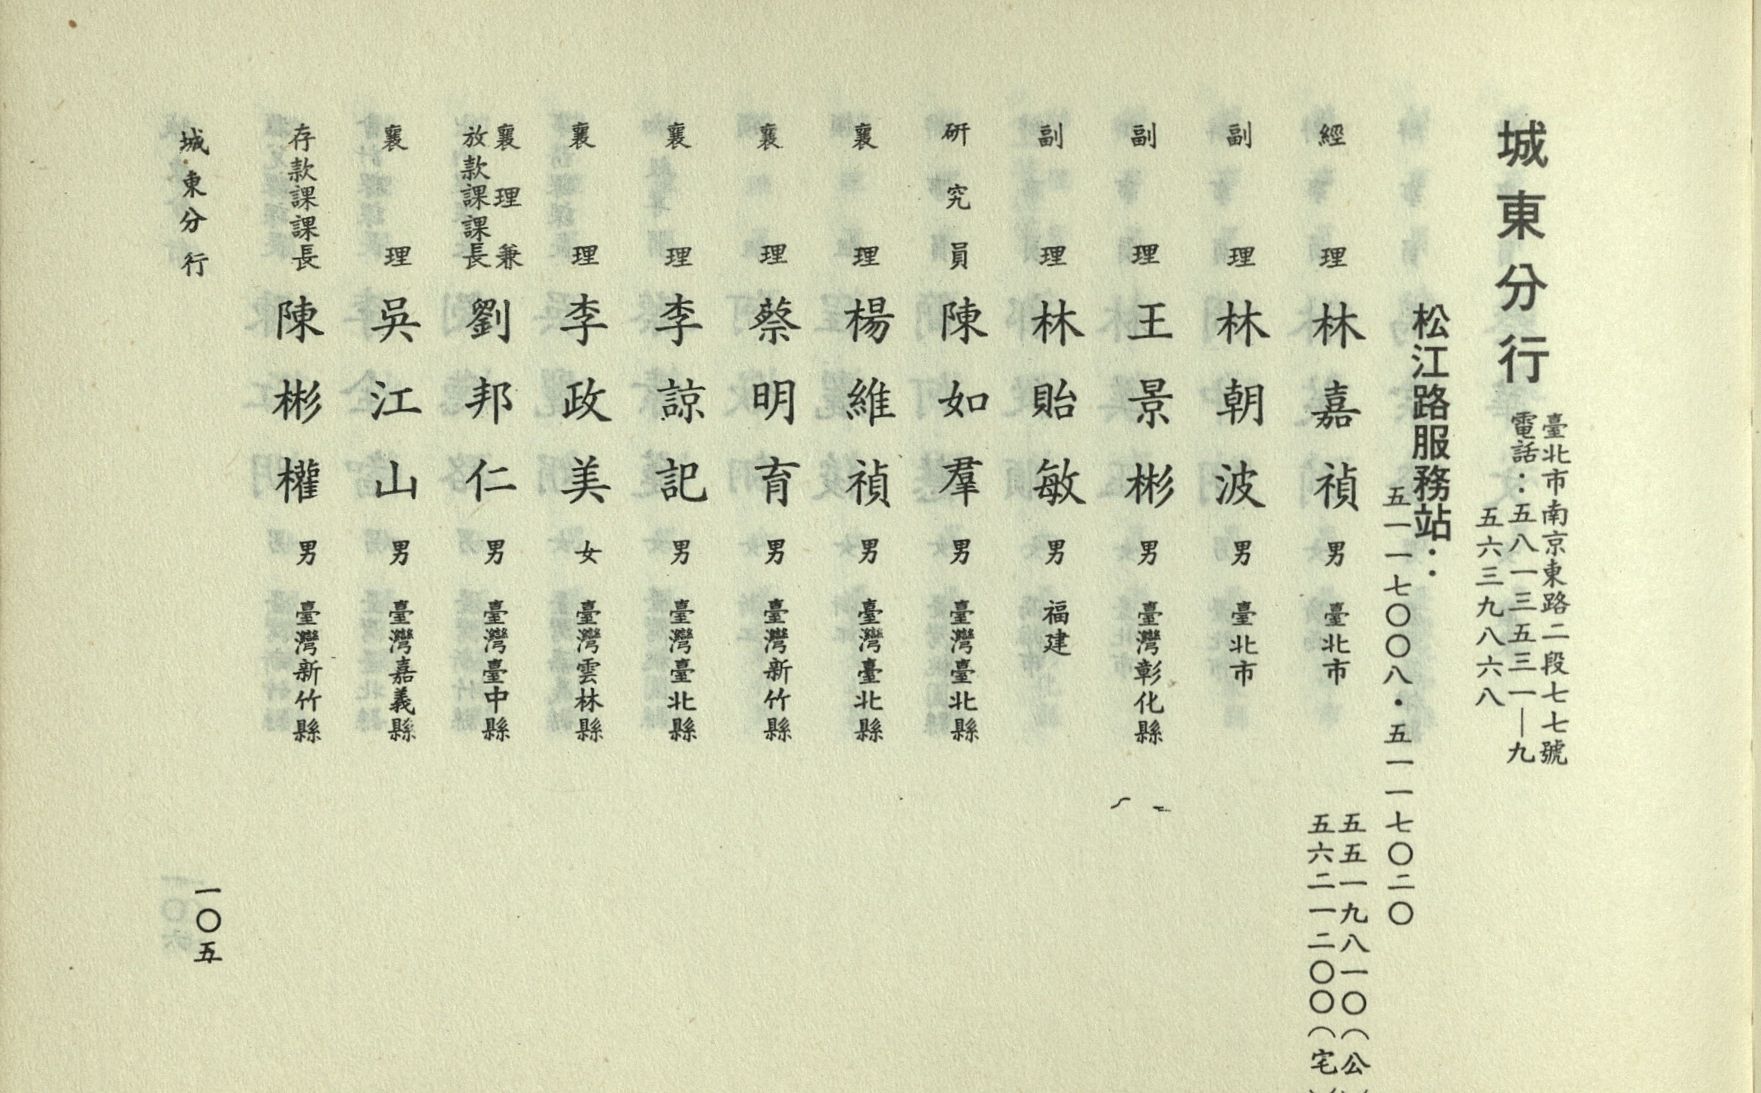 城東分行
臺北市南京東路二段七七號
電話：五八一三五三一—九
五六三九八六八
松江路服務站：
五一一七〇〇八・五一一七〇二〇
經理 林嘉禎 男 臺北市 五五一九八一〇（公
五六二一二〇〇（宅
副理 林朝波 男 臺北市
副理 王景彬 男 臺灣彰化縣
副理 林貽敏 男 福建
研究員 陳如羣 男 臺灣臺北縣
襄理 楊維禎 男 臺灣臺北縣
襄理 蔡明育 男 臺灣新竹縣
襄理 李諒記 男 臺灣臺北縣
襄理 李政美 女 臺灣雲林縣
襄理兼
放款課課長 劉邦仁 男 臺灣臺中縣
襄理 吳江山 男 臺灣嘉義縣
存款課課長 陳彬權 男 臺灣新竹縣
城東分行
一〇五